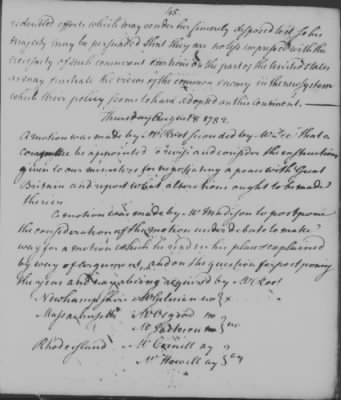 45.
redoubled efforts which may under her sincerely disposed
tragedy may be persuaded that they are no less impressed with the
necessity of such concurrent exertions on the part of the United States
as may frustrate the views of the common enemy in the new system
which their policy seems to have adopted on this continent.
Thursday August 8 1782
A motion was made by Mr. seconded by Mr. Lee that a
committee be appointed to revise and consider the instructions
given to our ministers for negotiating a peace with Great
Britain and report what alterations ought to be made
therein
A motion was made by Mr Madison to postpone
the consideration of the motion under debate to make
way for a motion which he read in his place & explained
by way of argument, and on the question for postponing
the yeas and nays being required by Mr Root
Newhampshire Mr Gilman no } x
Massachusetts Mr Osgood no
Mr Jackson no } no
Rhode Island Mr Cornell ay
Mr Howell ay } ay